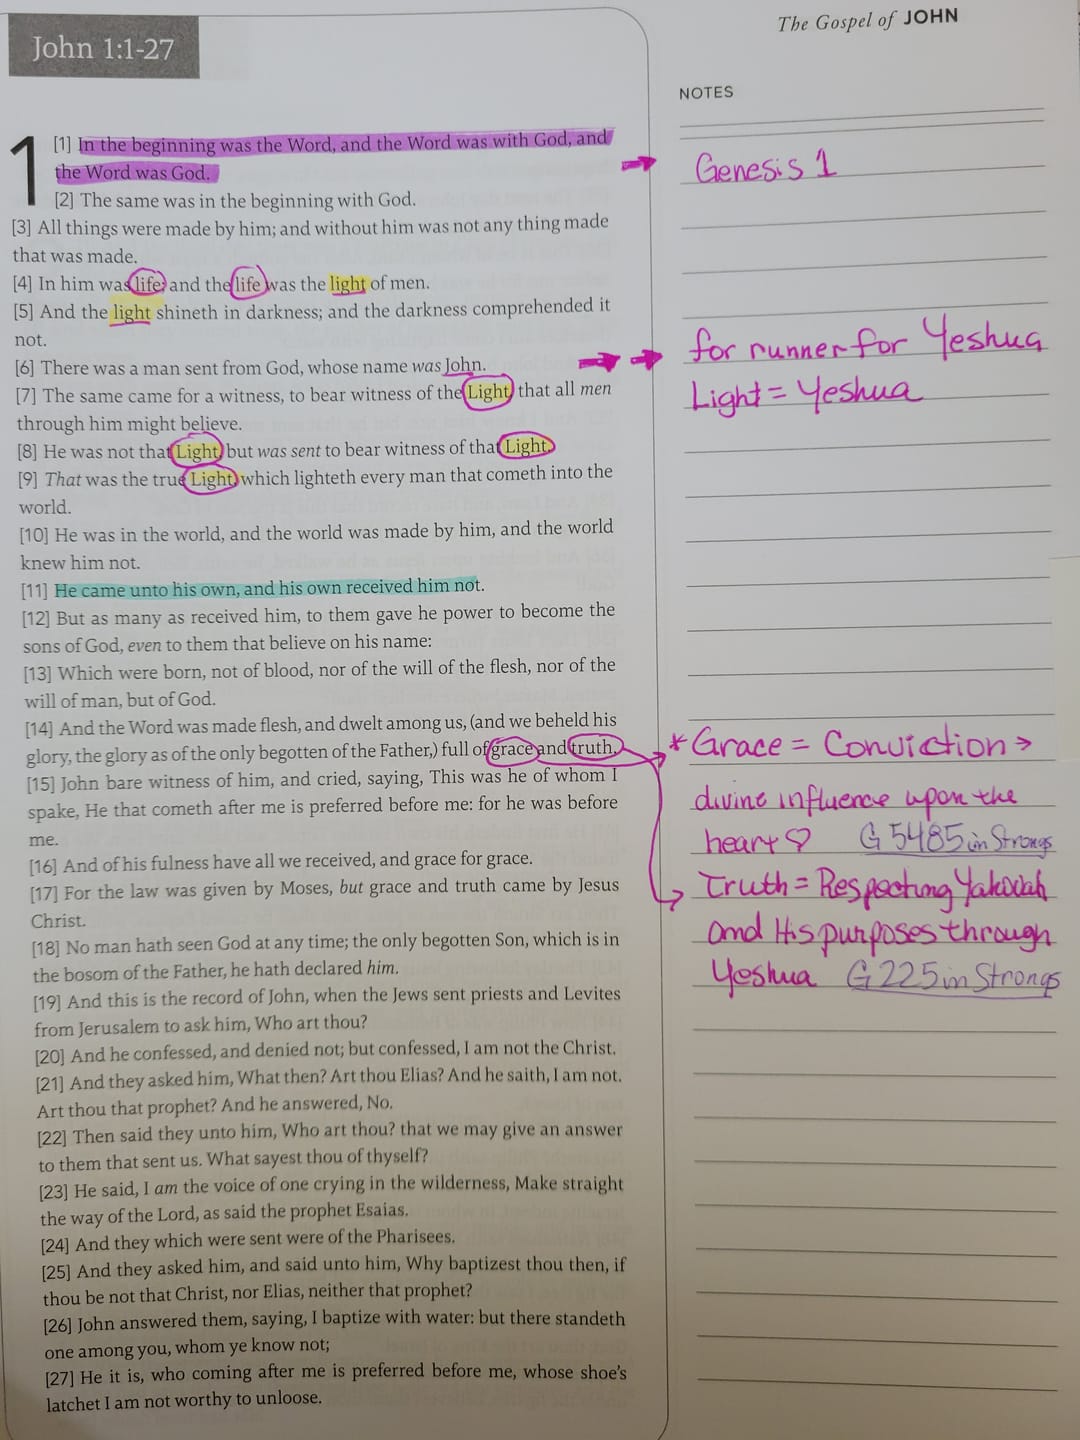 The Gospel of JOHN
John 1:1-27
NOTES
1
[1] In the beginning was the Word, and the Word was with God, and
the Word was God.
[2] The same was in the beginning with God.
[3] All things were made by him; and without him was not any thing made
that was made.
[4] In him was life; and the life was the light of men.
[5] And the light shineth in darkness; and the darkness comprehended it
not.
[6] There was a man sent from God, whose name was John.
[7] The same came for a witness, to bear witness of the Light, that all men
through him might believe.
[8] He was not that Light, but was sent to bear witness of that Light.
[9] That was the true Light, which lighteth every man that cometh into the
world.
[10] He was in the world, and the world was made by him, and the world
knew him not.
[11] He came unto his own, and his own received him not.
[12] But as many as received him, to them gave he power to become the
sons of God, even to them that believe on his name:
[13] Which were born, not of blood, nor of the will of the flesh, nor of the
will of man, but of God.
[14] And the Word was made flesh, and dwelt among us, (and we beheld his
glory, the glory as of the only begotten of the Father,) full of grace and truth.
[15] John bare witness of him, and cried, saying, This was he of whom I
spake, He that cometh after me is preferred before me: for he was before
me.
[16] And of his fulness have all we received, and grace for grace.
[17] For the law was given by Moses, but grace and truth came by Jesus
Christ.
[18] No man hath seen God at any time; the only begotten Son, which is in
the bosom of the Father, he hath declared him.
[19] And this is the record of John, when the Jews sent priests and Levites
from Jerusalem to ask him, Who art thou?
[20] And he confessed, and denied not; but confessed, I am not the Christ.
[21] And they asked him, What then? Art thou Elias? And he saith, I am not.
Art thou that prophet? And he answered, No.
[22] Then said they unto him, Who art thou? that we may give an answer
to them that sent us. What sayest thou of thyself?
[23] He said, I am the voice of one crying in the wilderness, Make straight
the way of the Lord, as said the prophet Esaias.
[24] And they which were sent were of the Pharisees.
[25] And they asked him, and said unto him, Why baptizest thou then, if
thou be not that Christ, nor Elias, neither that prophet?
[26] John answered them, saying, I baptize with water: but there standeth
one among you, whom ye know not;
[27] He it is, who coming after me is preferred before me, whose shoe's
latchet I am not worthy to unloose.
Genesis 1
for runner for Yeshua
Light = Yeshua
* Grace = Conviction →
divine influence upon the
heart ♡ G 5485 in Strongs
Truth = Respecting Yahovah
and His purposes through
Yeshua G 225 in Strongs